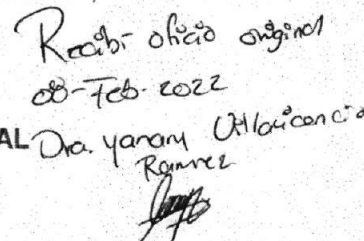 Recibi oficio original
08-Feb-2022
AL Dra. yanam Villavicencio
Ramirez